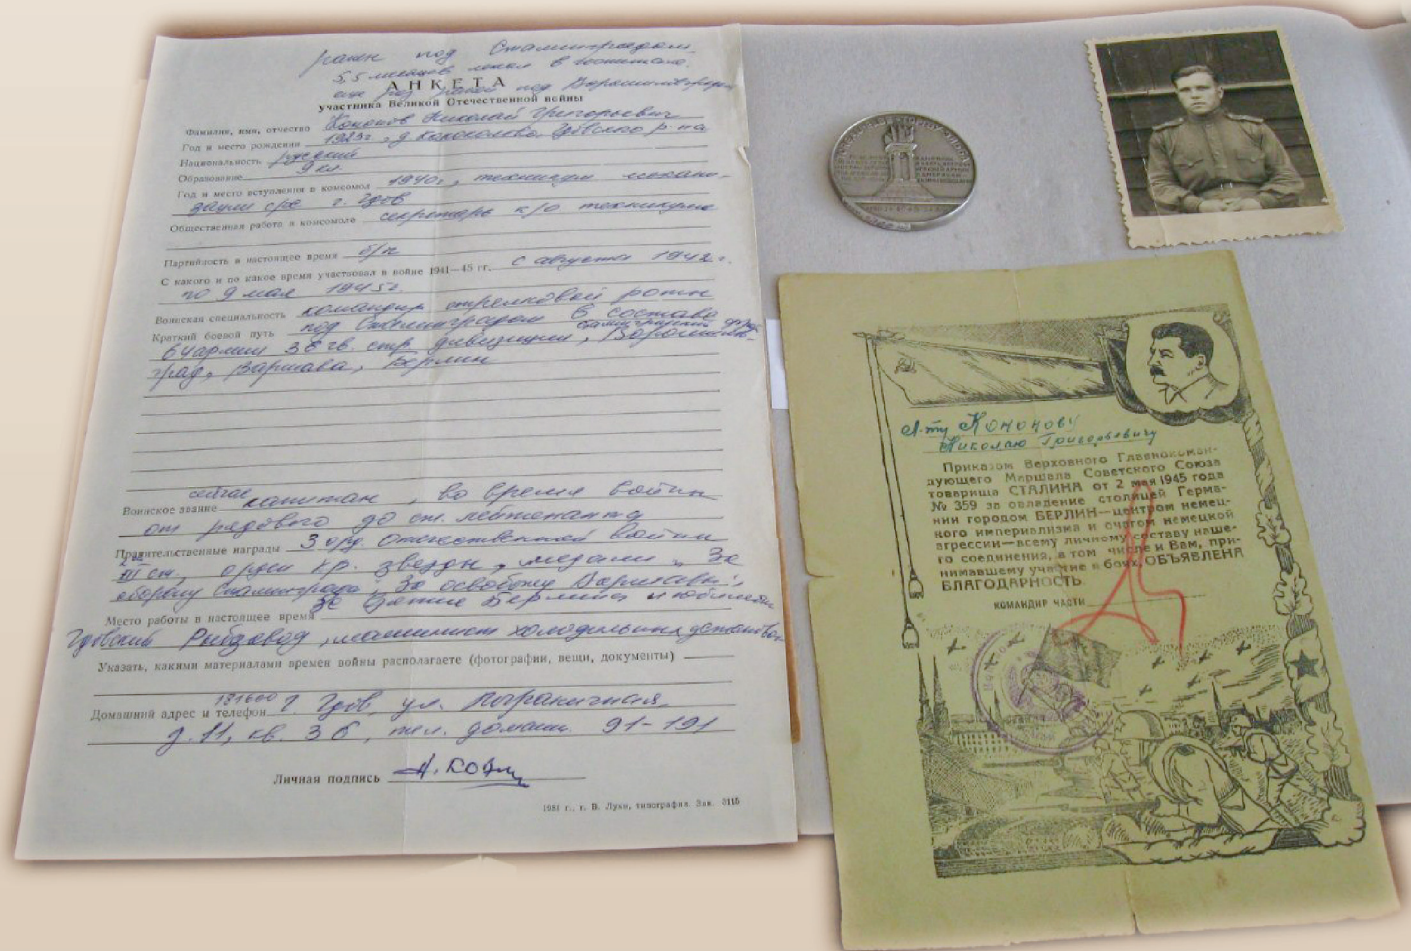 ранен под Сталинградом
5,5 месяцев лежал в госпитале.
еще раз ранен под Ворошиловградом
АНКЕТА
участника Великой Отечественной войны
Фамилия, имя, отчество Кононов Николай Григорьевич
Год и место рождения 1923г. д. Гдовского р-на
Национальность русский
Образование 9 кл
Год и место вступления в комсомол 1940г., техникум механи-
зации с/х г. Гдов
Общественная работа в комсомоле секретарь к/о техникума
Партийность в настоящее время б/п
С какого и по какое время участвовал в войне 1941—45 гг. с августа 1942 г.
по 9 мая 1945г.
Воинская специальность командир стрелковой роты
Краткий боевой путь под Сталинградом в составе
64 армии 36 гв. стр дивизии, Ворошилов-
град, Варшава, Берлин
Воинское звание сейчас капитан, во время войны
от рядового до ст. лейтенанта
Правительственные награды 3 орд. Отечественной войны
ст., орден Кр. звезды, медали „За
оборону Сталинграда, За освобожд Варшавы,
За взятие Берлина и юбилейн
Место работы в настоящее время
Гдовский Рыбзавод, машинист холодильных установок
Указать, какими материалами времен войны располагаете (фотографии, вещи, документы)
Домашний адрес и телефон 181600 г. Гдов, ул. Пограничная
д. 11, кв. 36, тел. домашн. 91-191
Личная подпись
1981 г., г. В. Луки, типография. Зак. 3115
Л-ту Кононову
Николаю Григорьевичу
Приказом Верховного Главнокоман-
дующего Маршала Советского Союза
товарища СТАЛИНА от 2 мая 1945 года
№ 359 за овладение столицей Герма-
нии городом БЕРЛИН—центром немец-
кого империализма и очагом немецкой
агрессии—всему личному составу наше-
го соединения, в том числе и Вам, при-
нимавшему участие в боях, ОБЪЯВЛЕНА
БЛАГОДАРНОСТЬ.
КОМАНДИР ЧАСТИ